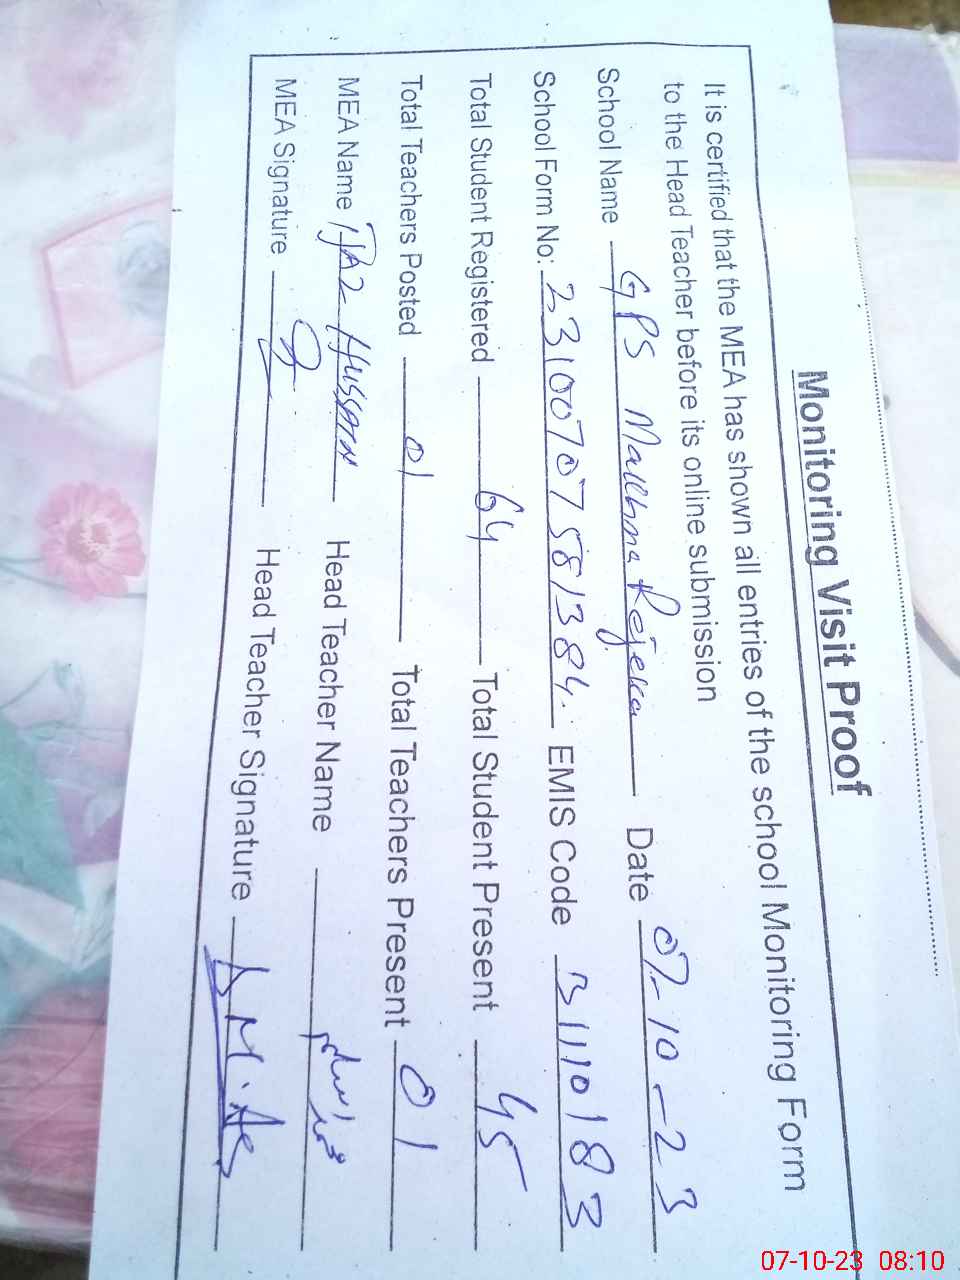 Monitoring Visit Proof
It is certified that the MEA has shown all entries of the school Monitoring Form
to the Head Teacher before its online submission
School Name GPS Date 07-10-23
School Form No: 23100707581384. EMIS Code
Total Student Registered 64 Total Student Present 45
Total Teachers Posted 01 Total Teachers Present 01
MEA Name Hussain Head Teacher Name
MEA Signature Head Teacher Signature
07-10-23 08:10